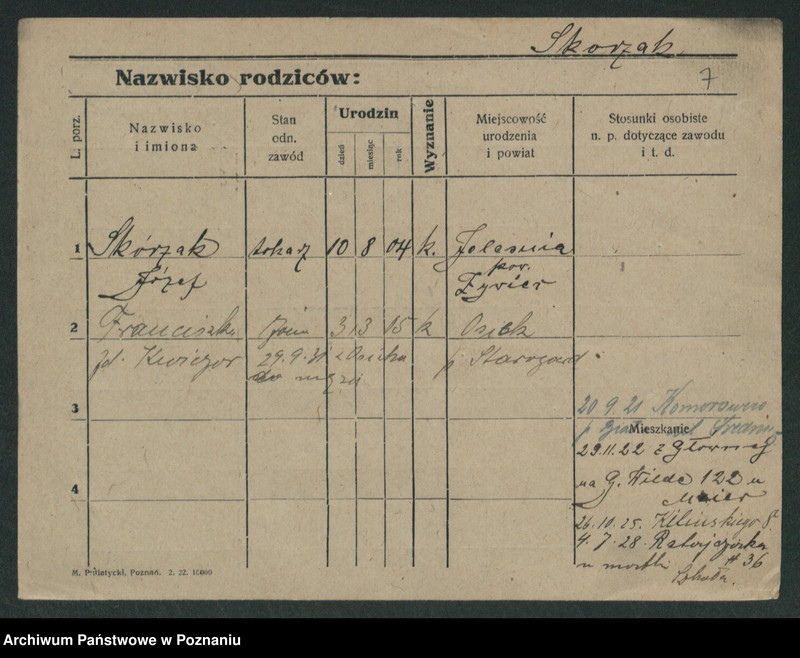 Skorzak
7
Nazwisko rodziców:
L. porz.
Nazwisko
i imiona
Stan
odn.
zawód
Urodzin
dzień
miesiąc
rok
Wyznanie
Miejscowość
urodzenia
i powiat
Stosunki osobiste
n. p. dotyczące zawodu
i t. d.
1 Skórzak tokarz 10 8 04 k. Jelesnia
Józef pow. Żywiec
2 Franciszka żona 3 3 15 k Osiek
29.9.31 z Osieka p. Starogard
do męża
3
20 9. 21 Komorowic
Mieszkanie
29.11.22 z Głównej
4
na G. Wilde 122 u
26.10.25. Kilińskiego 8
4.7.28. Ratajczaka
# 36
M. Pniatycki, Poznań. 2. 22. 10000
Archiwum Państwowe w Poznaniu